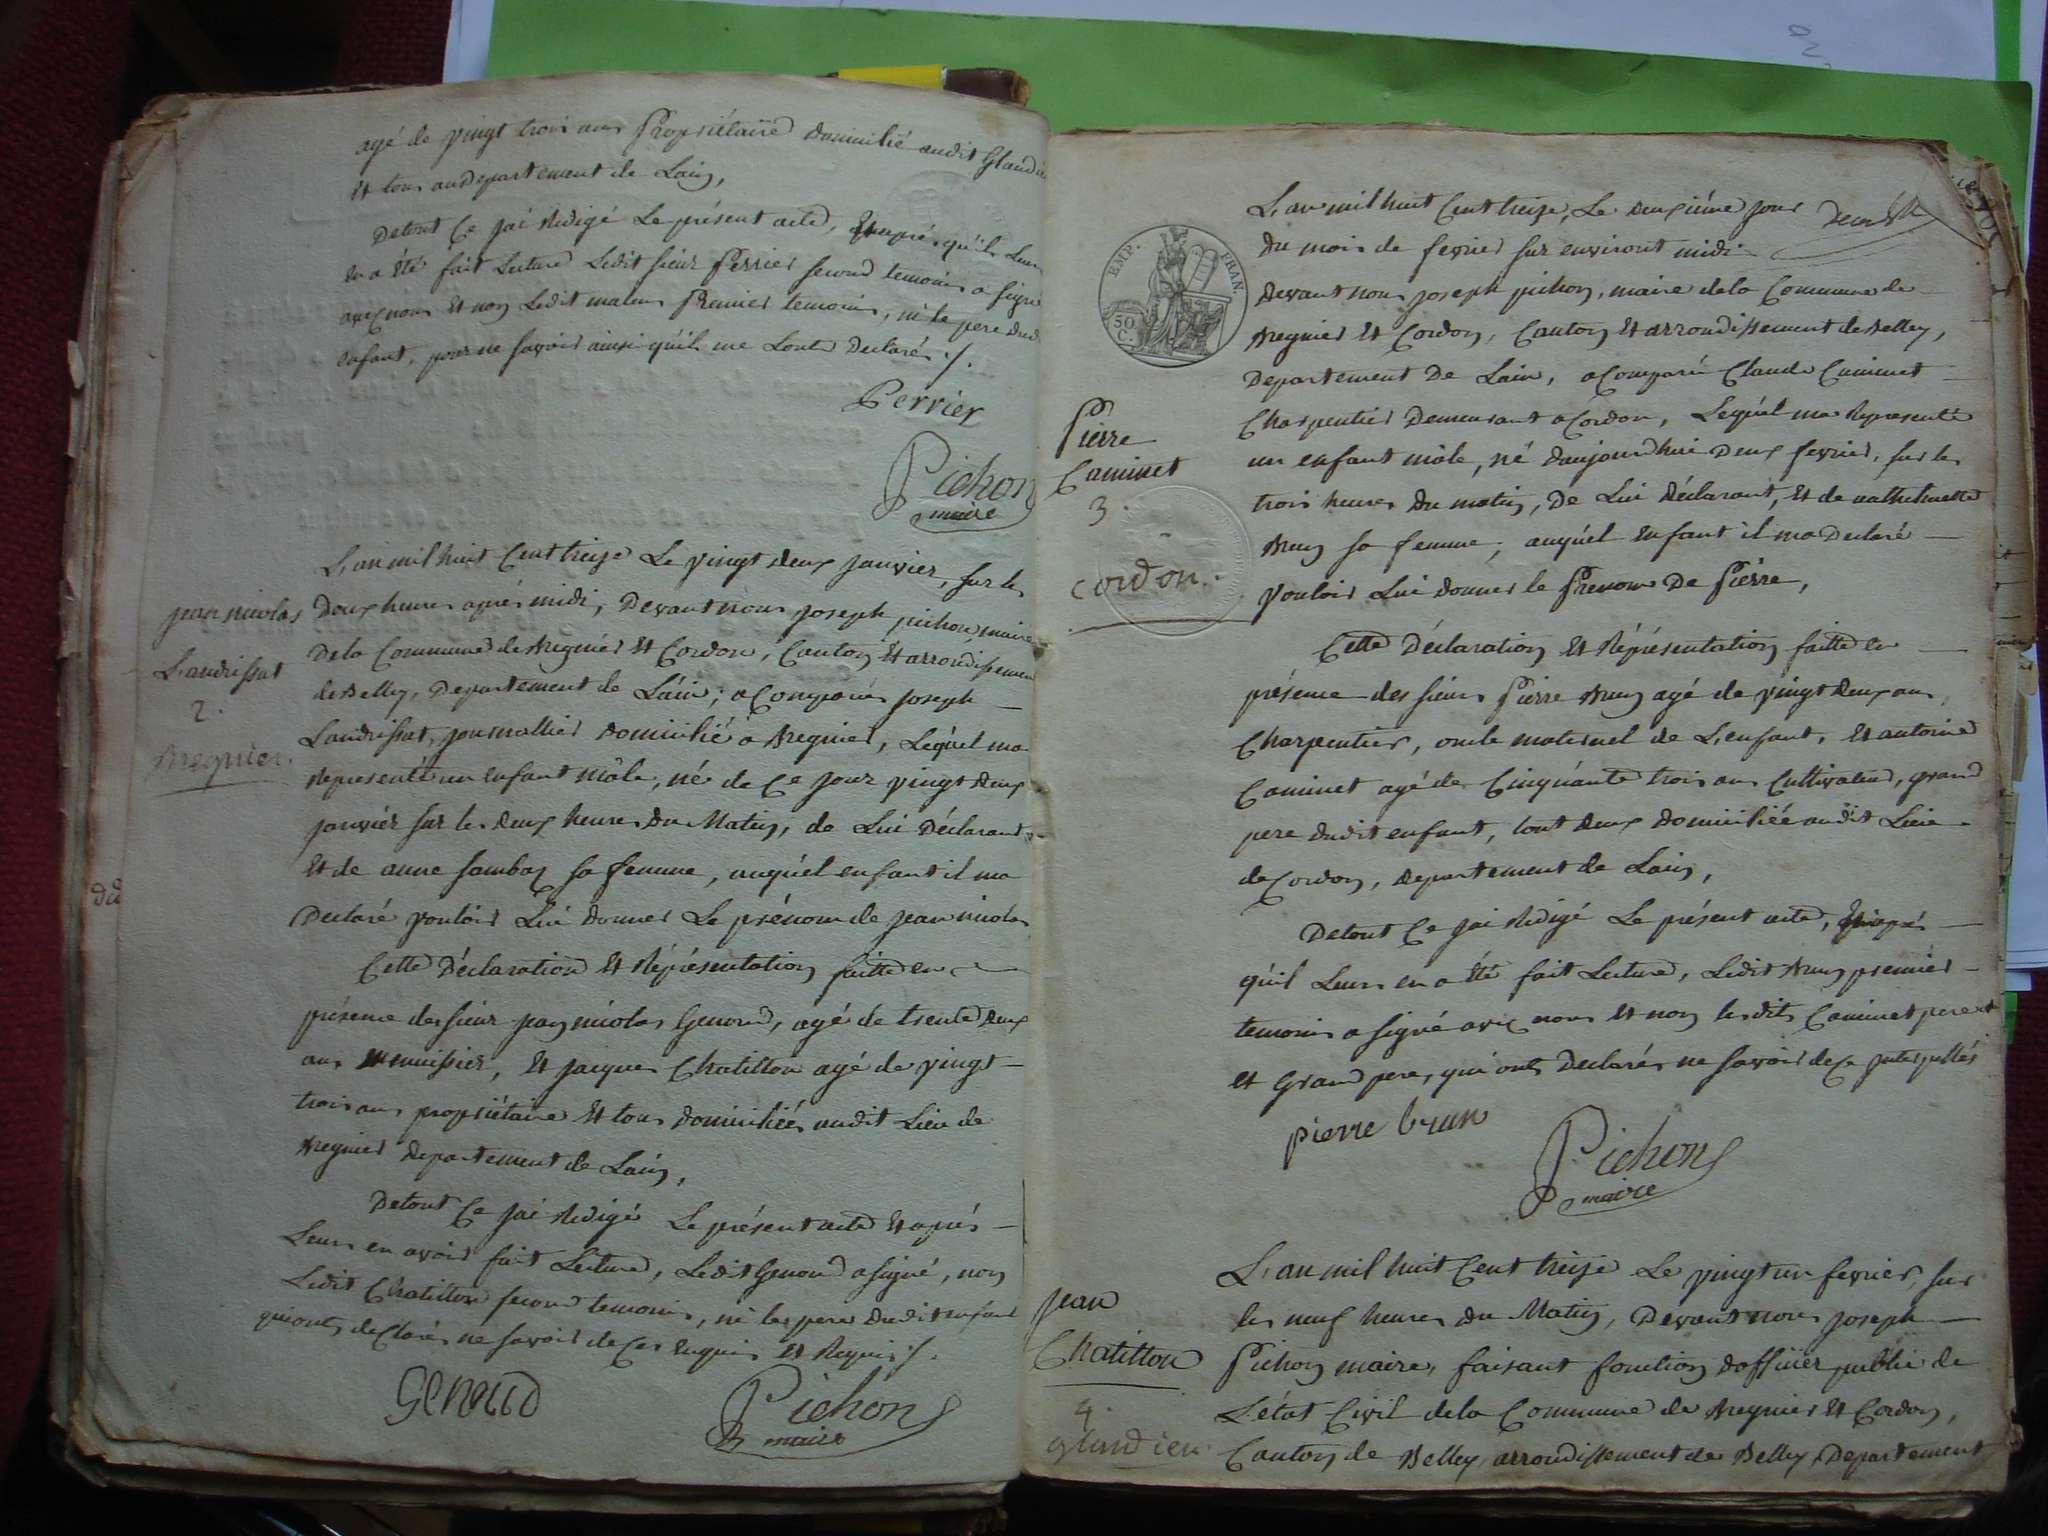 agé de vingt trois ans Propriétaire domicilié audit Glandieu
Et tous au Departement de Lain,
De tout Ce jai Redigé Le présent acte, Et après qu'il Leurs
en a Été fait Lecture Ledit sieur Perrier second temoins a signé
avec nous Et non Ledit premier temoins, ni le pere dudit
enfant, pour ne savoir ainsi qu'il me Lont Declarés ./.
Perrier
Pichon
maire
jean nicolas
Landrissat
2.
Bregnier.
L'an mil huit Cent treize Le vingt deux janvier, sur les
Deux heures après midi, Devant nous joseph pichon maire
De la Commune de Bregnier Et Cordon, Canton Et arrondissement
de Belley, Departement de Lain; a Comparu joseph
Landrissat, journallier domicilié a Bregnier, Lequel ma
Representé un enfant mâle, né de Ce jour vingt deux
janvier sur les deux heures Du Matin, de Lui Déclarant
Et de anne sa femme, auquel enfant il ma
Declaré vouloir Lui donner Le prénom de jean nicolas
Cette Déclaration Et Réprésentation faitte en
présence des sieur jean nicolas Genoud, agé de trente deux
ans menuisier, Et jacques Chatillon agé de vingt
trois ans propriétaire Et tous domiciliés audit Lieu de
Bregnier Departement de Lain,
De tout Ce jai Redigé Le présent acte Et après
Leurs en avoir fait Lecture, Ledit Genoud a signé, non
Ledit Chatillon second temoins, ni les pere Dudit enfant
qui onts declarés ne savoir de Ces Enquis Et Requis ./.
Genoud
Pichon
maire
EMP. FRAN.
50
C.
L'an mil huit Cent treize, Le deuxième jour
du mois de fevrier sur environt midi
Devant nous joseph pichon, maire de la Commune de
Bregnier Et Cordon, Canton Et arrondissement de Belley,
Departement De Lain, a Comparu Claude Caminet
Charpentier Demeurant a Cordon, Lequel ma Representé
un enfant mâle, né daujourdhui Deux fevrier, sur les
trois heures du matin, De Lui déclarant, Et de
Brun sa femme; auquel Enfant il ma Declaré
vouloir Lui donner le Prenom De Piérre,
Pierre
Caminet
3.
Cordon.
Cette Déclaration Et Réprésentation faitte en
présence des sieurs Pierre Brun agé de vingt deux ans
Charpentier, oncle maternel de L'enfant, Et antoine
Caminet agé de Cinquante trois ans Cultivateur, grand
pere dudit enfant, tout deux domiciliée audit Lieu
de Cordon, departement de Lain,
De tout Ce jai Redigé Le présent acte, Et après
qu'il Leurs en a Été fait Lecture, Ledit Brun premier
temoins a signé avec nous Et non lesdits Caminet pere
Et Grand pere, qui onts Declarés ne savoir de Ce Interpellés
pierre brun
Pichon
maire
jean
Chatillon
4.
glandieu.
L'an mil huit Cent treize Le vingt un fevrier, sur
les neuf heures du Matin, Devant nous joseph
Pichon maire, faisant fonction dofficier public de
L'état Civil de la Commune de Bregnier Et Cordon,
Canton de Belley arrondissement de Belley Departement